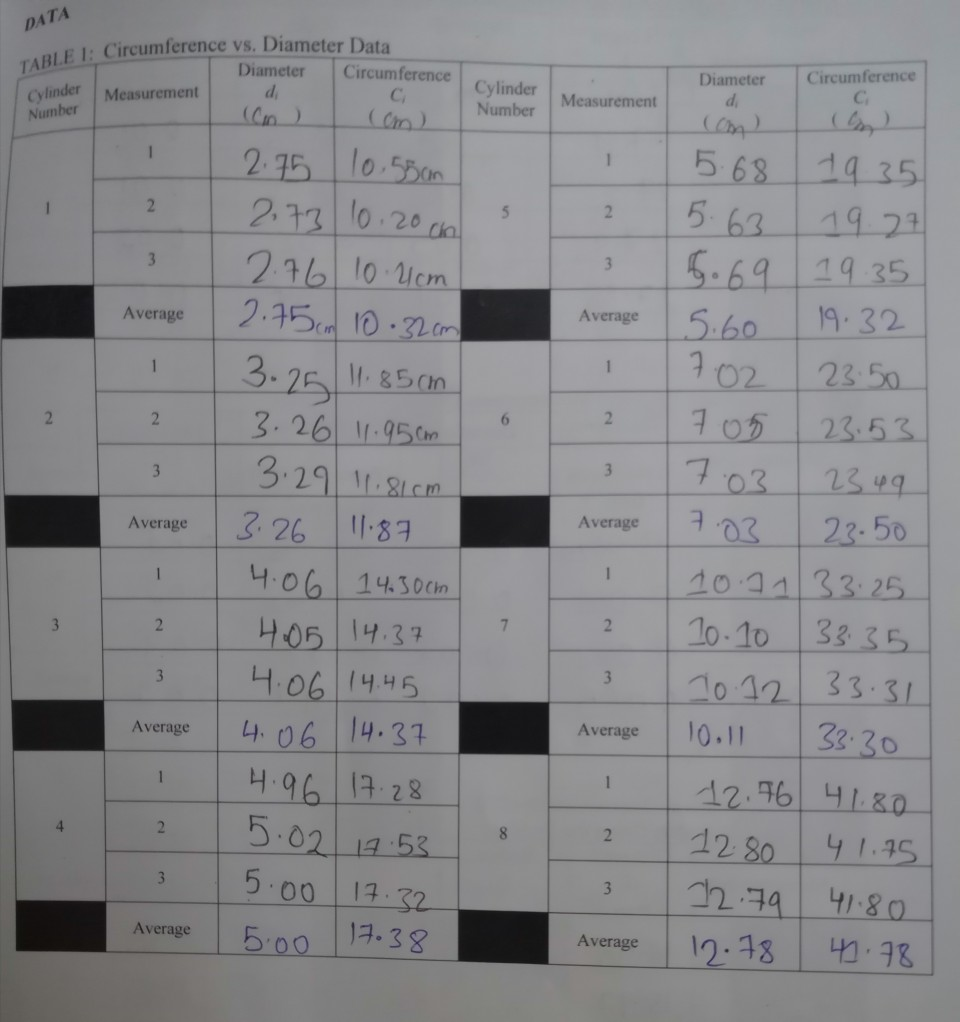 DATA
TABLE 1: Circumference vs. Diameter Data
Cylinder Number Measurement Diameter dᵢ (cm) Circumference Cᵢ (cm) Cylinder Number Measurement Diameter dᵢ (cm) Circumference Cᵢ (cm)
1 1 2.75 10.55cm 5 1 5.68 19.35
2 2.73 10.20 cm 2 5.63 19.27
3 2.76 10.21cm 3 5.69 19.35
Average 2.75cm 10.32cm Average 5.60 19.32
2 1 3.25 11.85cm 6 1 7.02 23.50
2 3.26 11.95cm 2 7.05 23.53
3 3.29 11.81cm 3 7.03 23.49
Average 3.26 11.87 Average 7.03 23.50
3 1 4.06 14.30cm 7 1 10.11 33.25
2 4.05 14.37 2 10.10 33.35
3 4.06 14.45 3 10.12 33.31
Average 4.06 14.37 Average 10.11 33.30
4 1 4.96 17.28 8 1 12.76 41.80
2 5.02 17.53 2 12.80 41.75
3 5.00 17.32 3 12.79 41.80
Average 5.00 17.38 Average 12.78 41.78